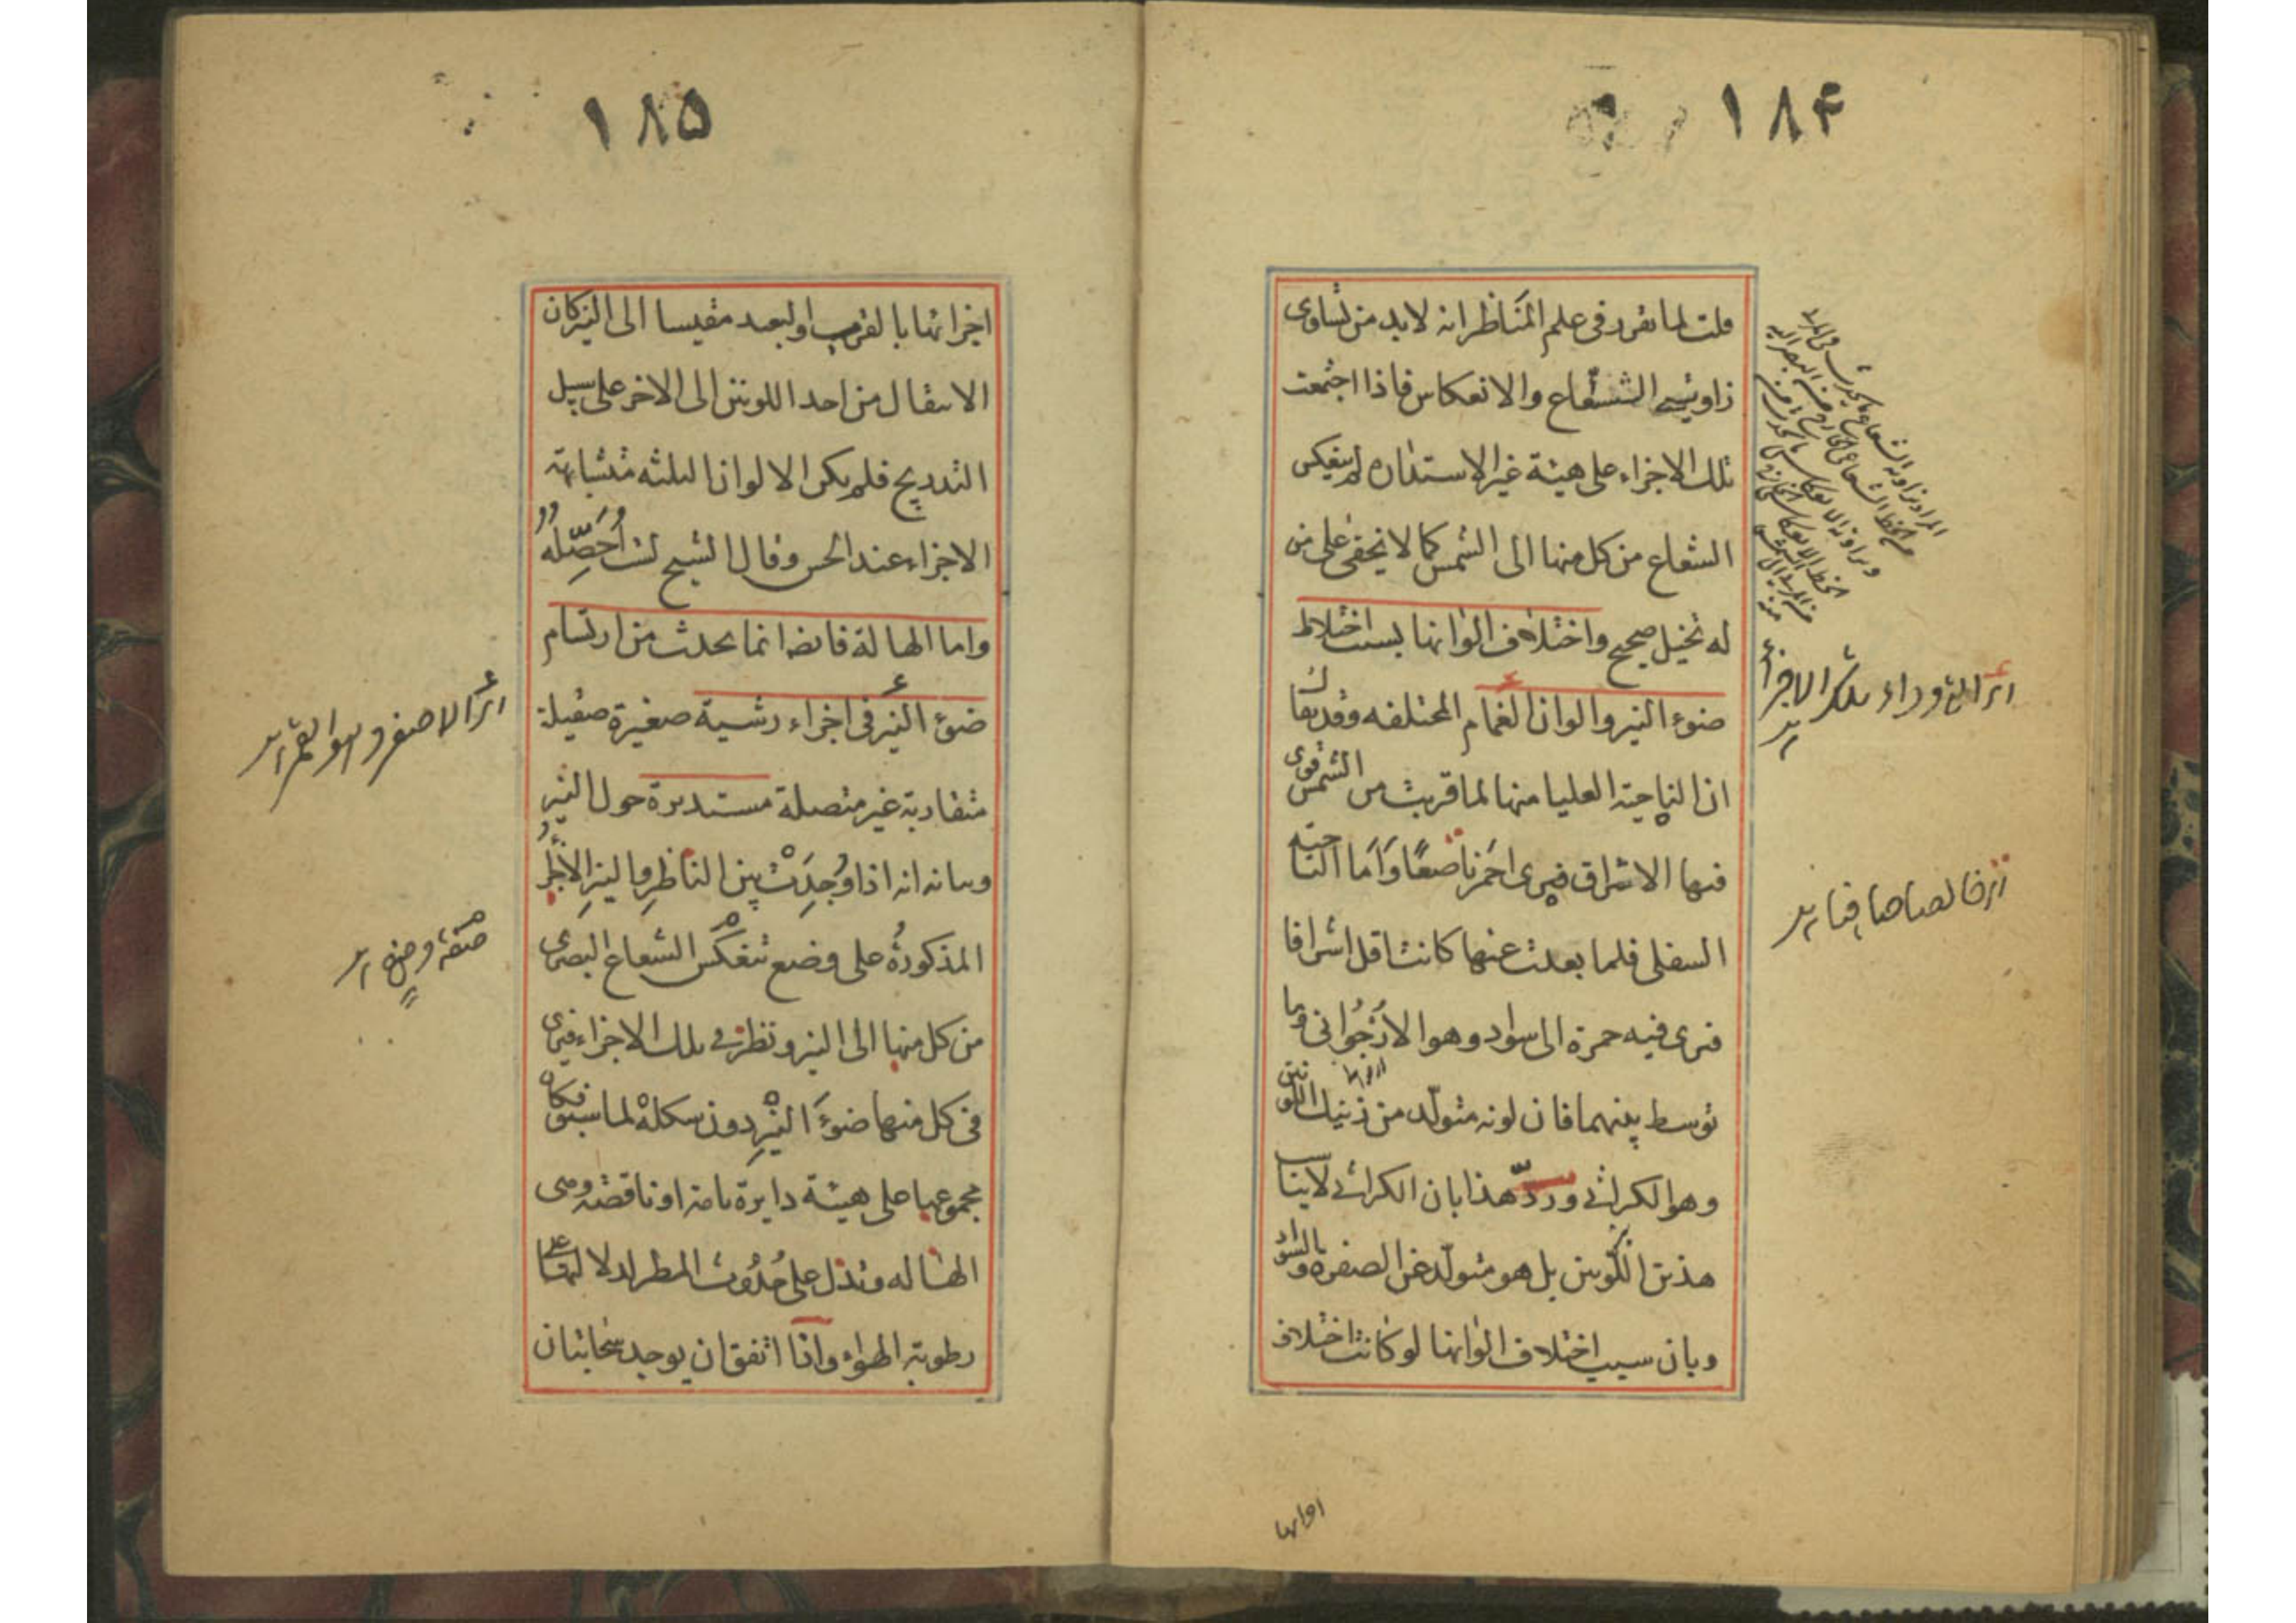 ١٨۴
قلت لما تقرر فى علم المَناظر انه لابد من تساوى
زاويتى الشعاع والانعكاس فاذا اجتمعت
تلك الاجزاء على هيئة غير الاستداره لم ينعكس
الشعاع من كل منها الى الشمس كما لا يخفى على من
له تخيل صحيح واختلاف الوانها بسبب اختلاط
ضوء النير والوان الغمام المختلفه وقد يقال
ان الناحية العليا منها لما قربت من الشمس قوى
فيها الاشراق فيرى احمَر ناصعًا وَاَما الناحية
السفلى فلما بعدت عنها كانت اقل اشراقا
فيرى فيه حمرة الى سواد وهو الارْجُوانى وما
توسط بينهما فان لونه متولّد من ذينك اللونين
وهو الكراثى وردّ هذا بان الكراثى لا يناسب
هذين اللّونين بل هو متولّد عن الصفره والسواد
وبان سبب اختلاف الوانها لو كانت اختلاف
اى التى وراء تلك الاجزاء
اى خالصا صافيا
اجزائها
١٨۵
اجزائها بالقرب والبعد مقيسا الى النير كان
الانتقال من احد اللونين الى الاخر على سبيل
التدريج فلم يكن الالوان الثلثه متشابهة
الاجزاء عند الحس وقال الشيخ لست اُحَصِّلُهُ
واما الهالة فانها انما يحدث من ارتسام
ضوء النير فى اجزاء رشية صغيرة صقيلة
متقاربة غير متصلة مستديرة حول النير
وبيانه انه اذا وُجِدَتْ بين الناظِرِ والنيرِ الاجزاءُ
المذكورةُ على وضع ينعكسُ الشعاع البصرى
من كل منها الى النير ونظر فى تلك الاجزاء فيرى
فى كل منها ضوءَ النيِّرِ دون شكلهْ لما سبق فكان
مجموعها على هيئة دايرة تامة او ناقصة وهى
الهاله وتدل على حُدُوث المطر لدلالتها على
رطوبة الهواء واذا اتفق ان يوجد سحابتان